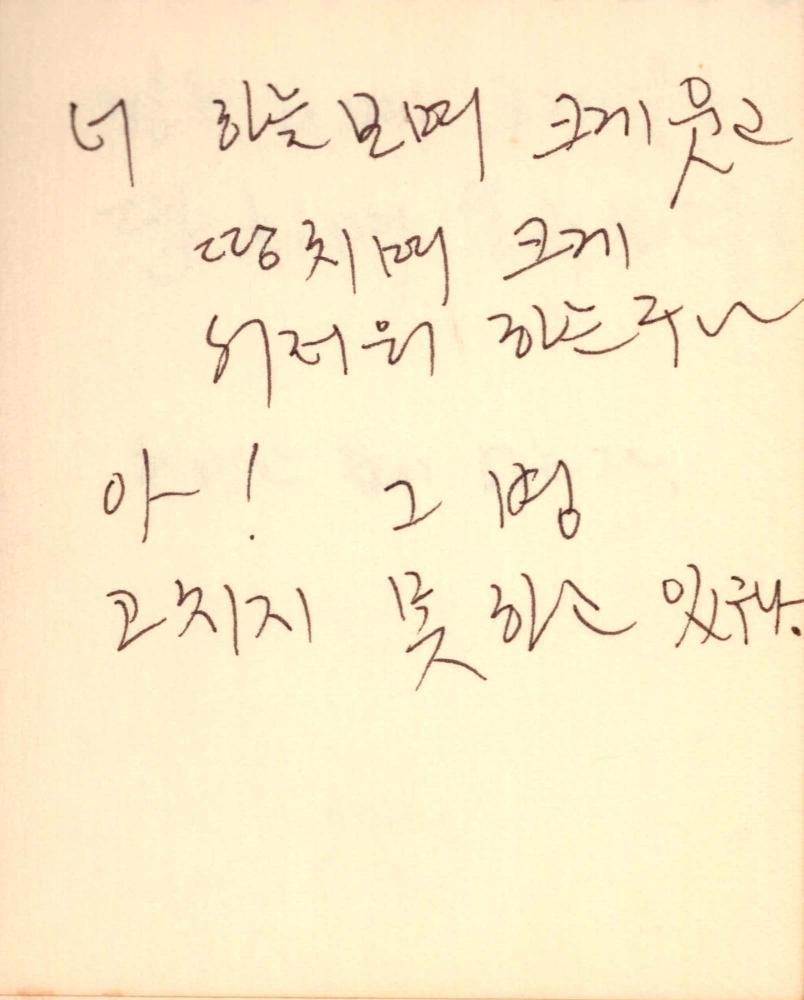 너 하늘보며 크게웃고
땅치며 크게
하는구나
아! 그 병
고치지 못하고 있구나.